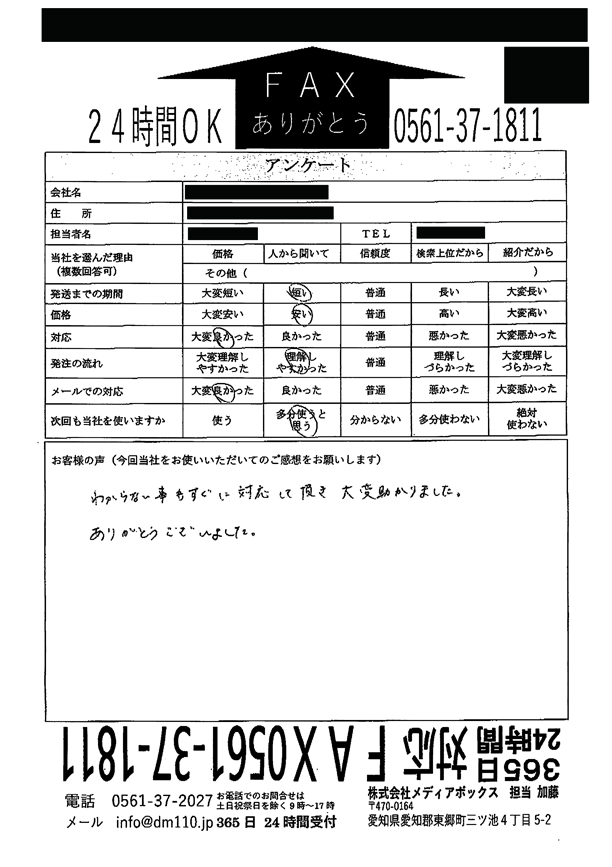 FAX
ありがとう
24時間OK
0561-37-1811
アンケート
会社名
住 所
担当者名 TEL
当社を選んだ理由(複数回答可) 価格 人から聞いて 信頼度 検索上位だから 紹介だから
その他( )
発送までの期間 大変短い 短い 普通 長い 大変長い
価格 大変安い 安い 普通 高い 大変高い
対応 大変良かった 良かった 普通 悪かった 大変悪かった
発注の流れ 大変理解しやすかった 理解しやすかった 普通 理解しづらかった 大変理解しづらかった
メールでの対応 大変良かった 良かった 普通 悪かった 大変悪かった
次回も当社を使いますか 使う 多分使うと思う 分からない 多分使わない 絶対使わない
お客様の声(今回当社をお使いいただいてのご感想をお願いします)
わからない事もすぐに対応して頂き 大変助かりました。
ありがとうございました。
365日24時間対応 FAX0561-37-1811
電話 0561-37-2027 お電話でのお問合せは土日祝祭日を除く9時~17時
メール info@dm110.jp 365日 24時間受付
株式会社メディアボックス 担当 加藤
〒470-0164
愛知県愛知郡東郷町三ツ池4丁目5-2